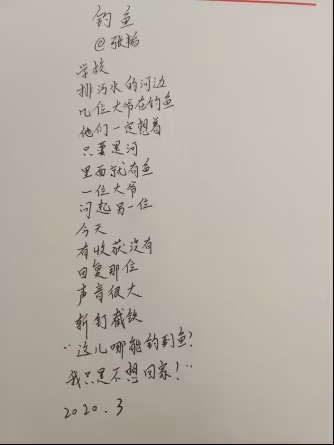 钓鱼
@张韬
学校
排污水的河边
几位大爷在钓鱼
他们一定想着
只要是河
里面就有鱼
一位大爷
问起另一位
今天
有收获没有
回复那位
声音很大
斩钉截铁
“这儿哪能钓到鱼？
我只是不想回家！”
2020.3